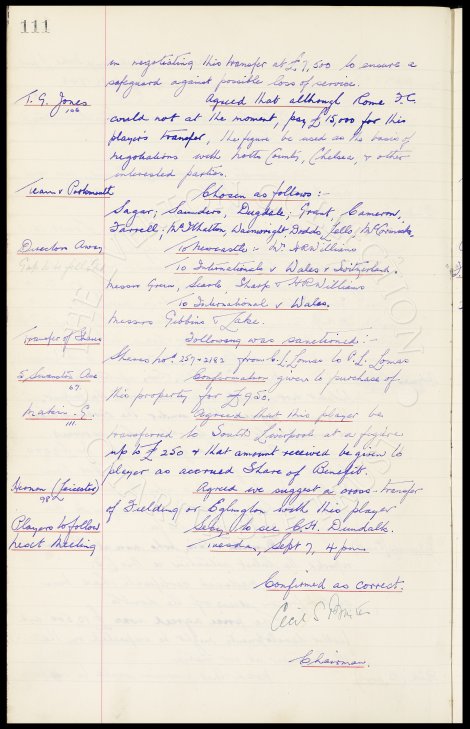 111
in negotiating this transfer at £7,500 to ensure a
safeguard against possible loss of service.
T. G. Jones
106
Agreed that although Rome F.C.
could not at the moment, pay £15,000 for this
players transfer, the figure be used as the basis of
negotiations with Notts County, Chelsea, & other
interested parties.
Team v Portsmouth
Chosen as follows:-
Sagar; Saunders, Dugdale; Grant, Cameron,
Farrell; McIlhatton, Wainwright, Dodds, Fells, McCormick.
Directors Away
To Newcastle:- Mr. H.R. Williams
To Internationals v Wales & Switzerland:
Messrs Green, Searle, Sharp & H R Williams
To International v Wales.
Messrs Gibbins & Lake.
Transfer of Shares
Following was sanctioned:-
Shares Nos. 257 & 2182 from C. L. Lomas to P. L. Lomas
Ave
67.
Confirmation given to purchase of
this property for £950.
Makin. G.
111.
Agreed that this player be
transferred to South Liverpool at a figure
up to £250 & that amount received be given to
player as accrued Share of Benefit.
(Leicester)
98
Agreed we suggest a cross-transfer
of Fielding or Eglington with this player
Players to follow
Secy to see C.H. Dundalk.
Next Meeting
Tuesday, Sept 7, 4 pm
Confirmed as correct.
Cecil S
Chairman.